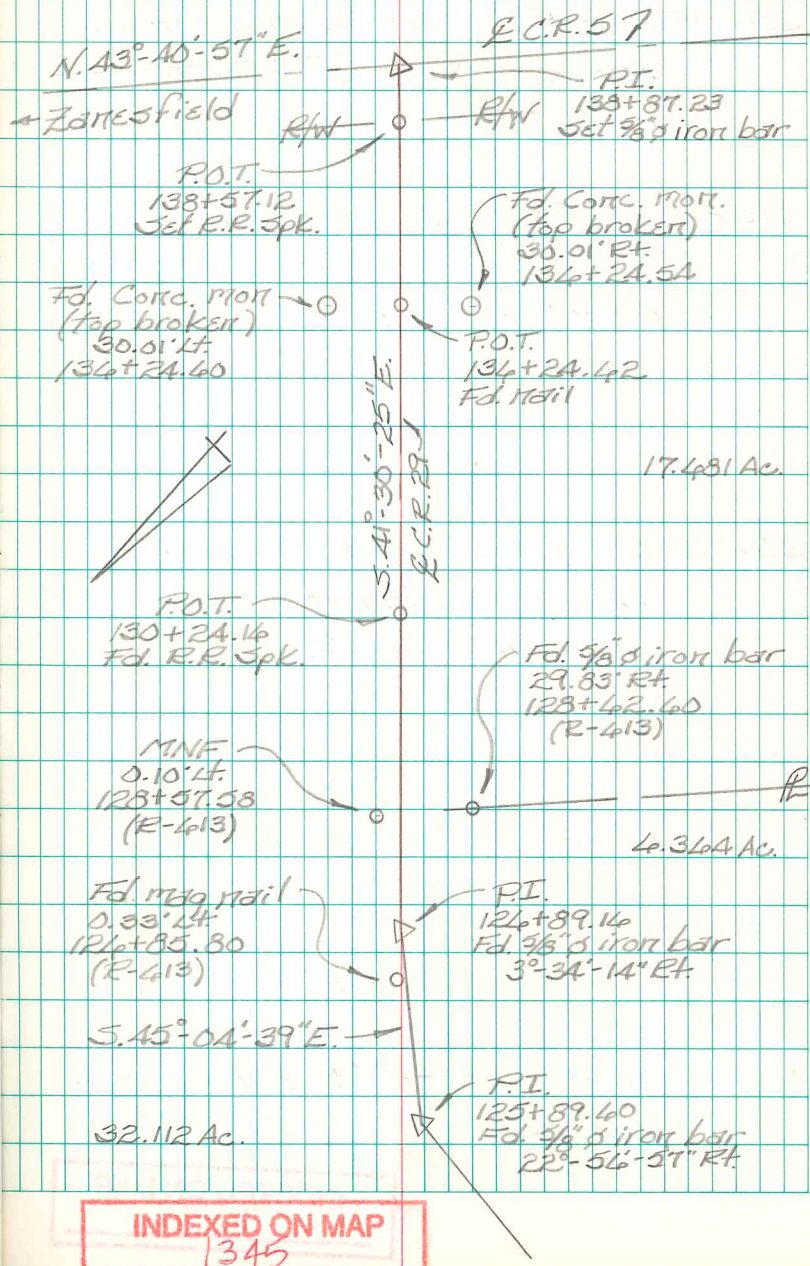 ℄ C.R. 57
N. 43°-40'-57" E.
← Zanesfield
P.I.
138+87.23
Set 5/8" ø iron bar
R/W
R/W
P.O.T.
138+57.12
Set R.R. Spk.
Fd. Conc. mon.
(top broken)
30.01' Rt.
136+24.54
Fd. Conc. mon
(top broken)
30.01' Lt.
136+24.60
P.O.T.
136+24.62
Fd. nail
S. 41°-30'-25" E.
℄ C.R. 29
17.681 Ac.
P.O.T.
130+24.16
Fd. R.R. Spk.
Fd. 5/8" ø iron bar
29.83' Rt.
128+62.60
(R-613)
MNF
0.10' Lt.
128+57.58
(R-613)
℄
6.364 Ac.
Fd. mag nail
0.33' Lt.
126+85.80
(R-613)
P.I.
126+89.16
Fd. 5/8" ø iron bar
3°-34'-14" Rt.
S. 45°-04'-39" E.
P.I.
125+89.60
Fd. 5/8" ø iron bar
22°-56'-57" Rt.
32.112 Ac.
INDEXED ON MAP
1345